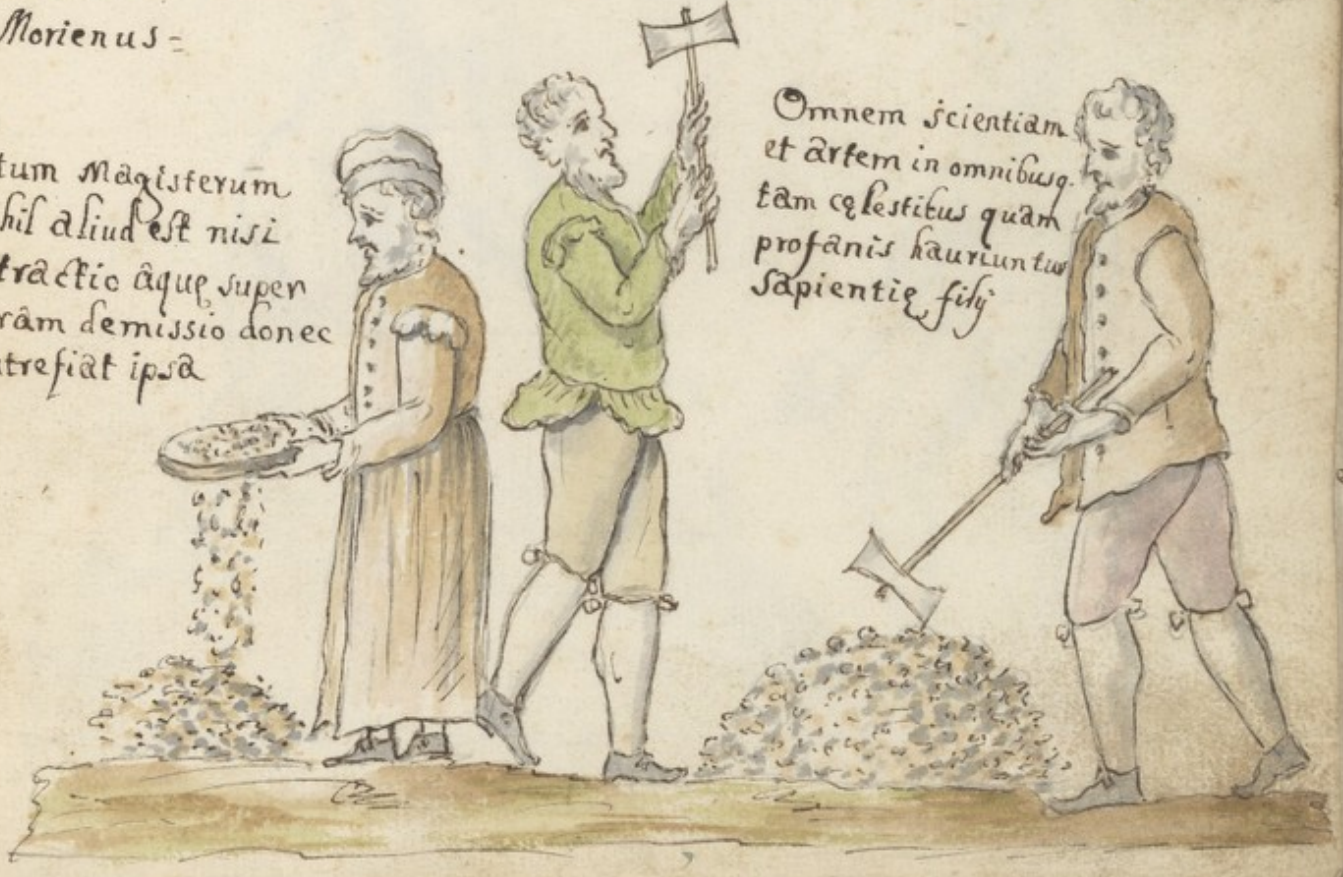 Morienus=
tum Magisterum
hil aliud est nisi
tractio aquę super
ram demissio donec
trefiat ipsa
Omnem scientiam
et artem in omnibusq.
tam cęlestibus quam
profanis hauriuntur
Sapientię filij